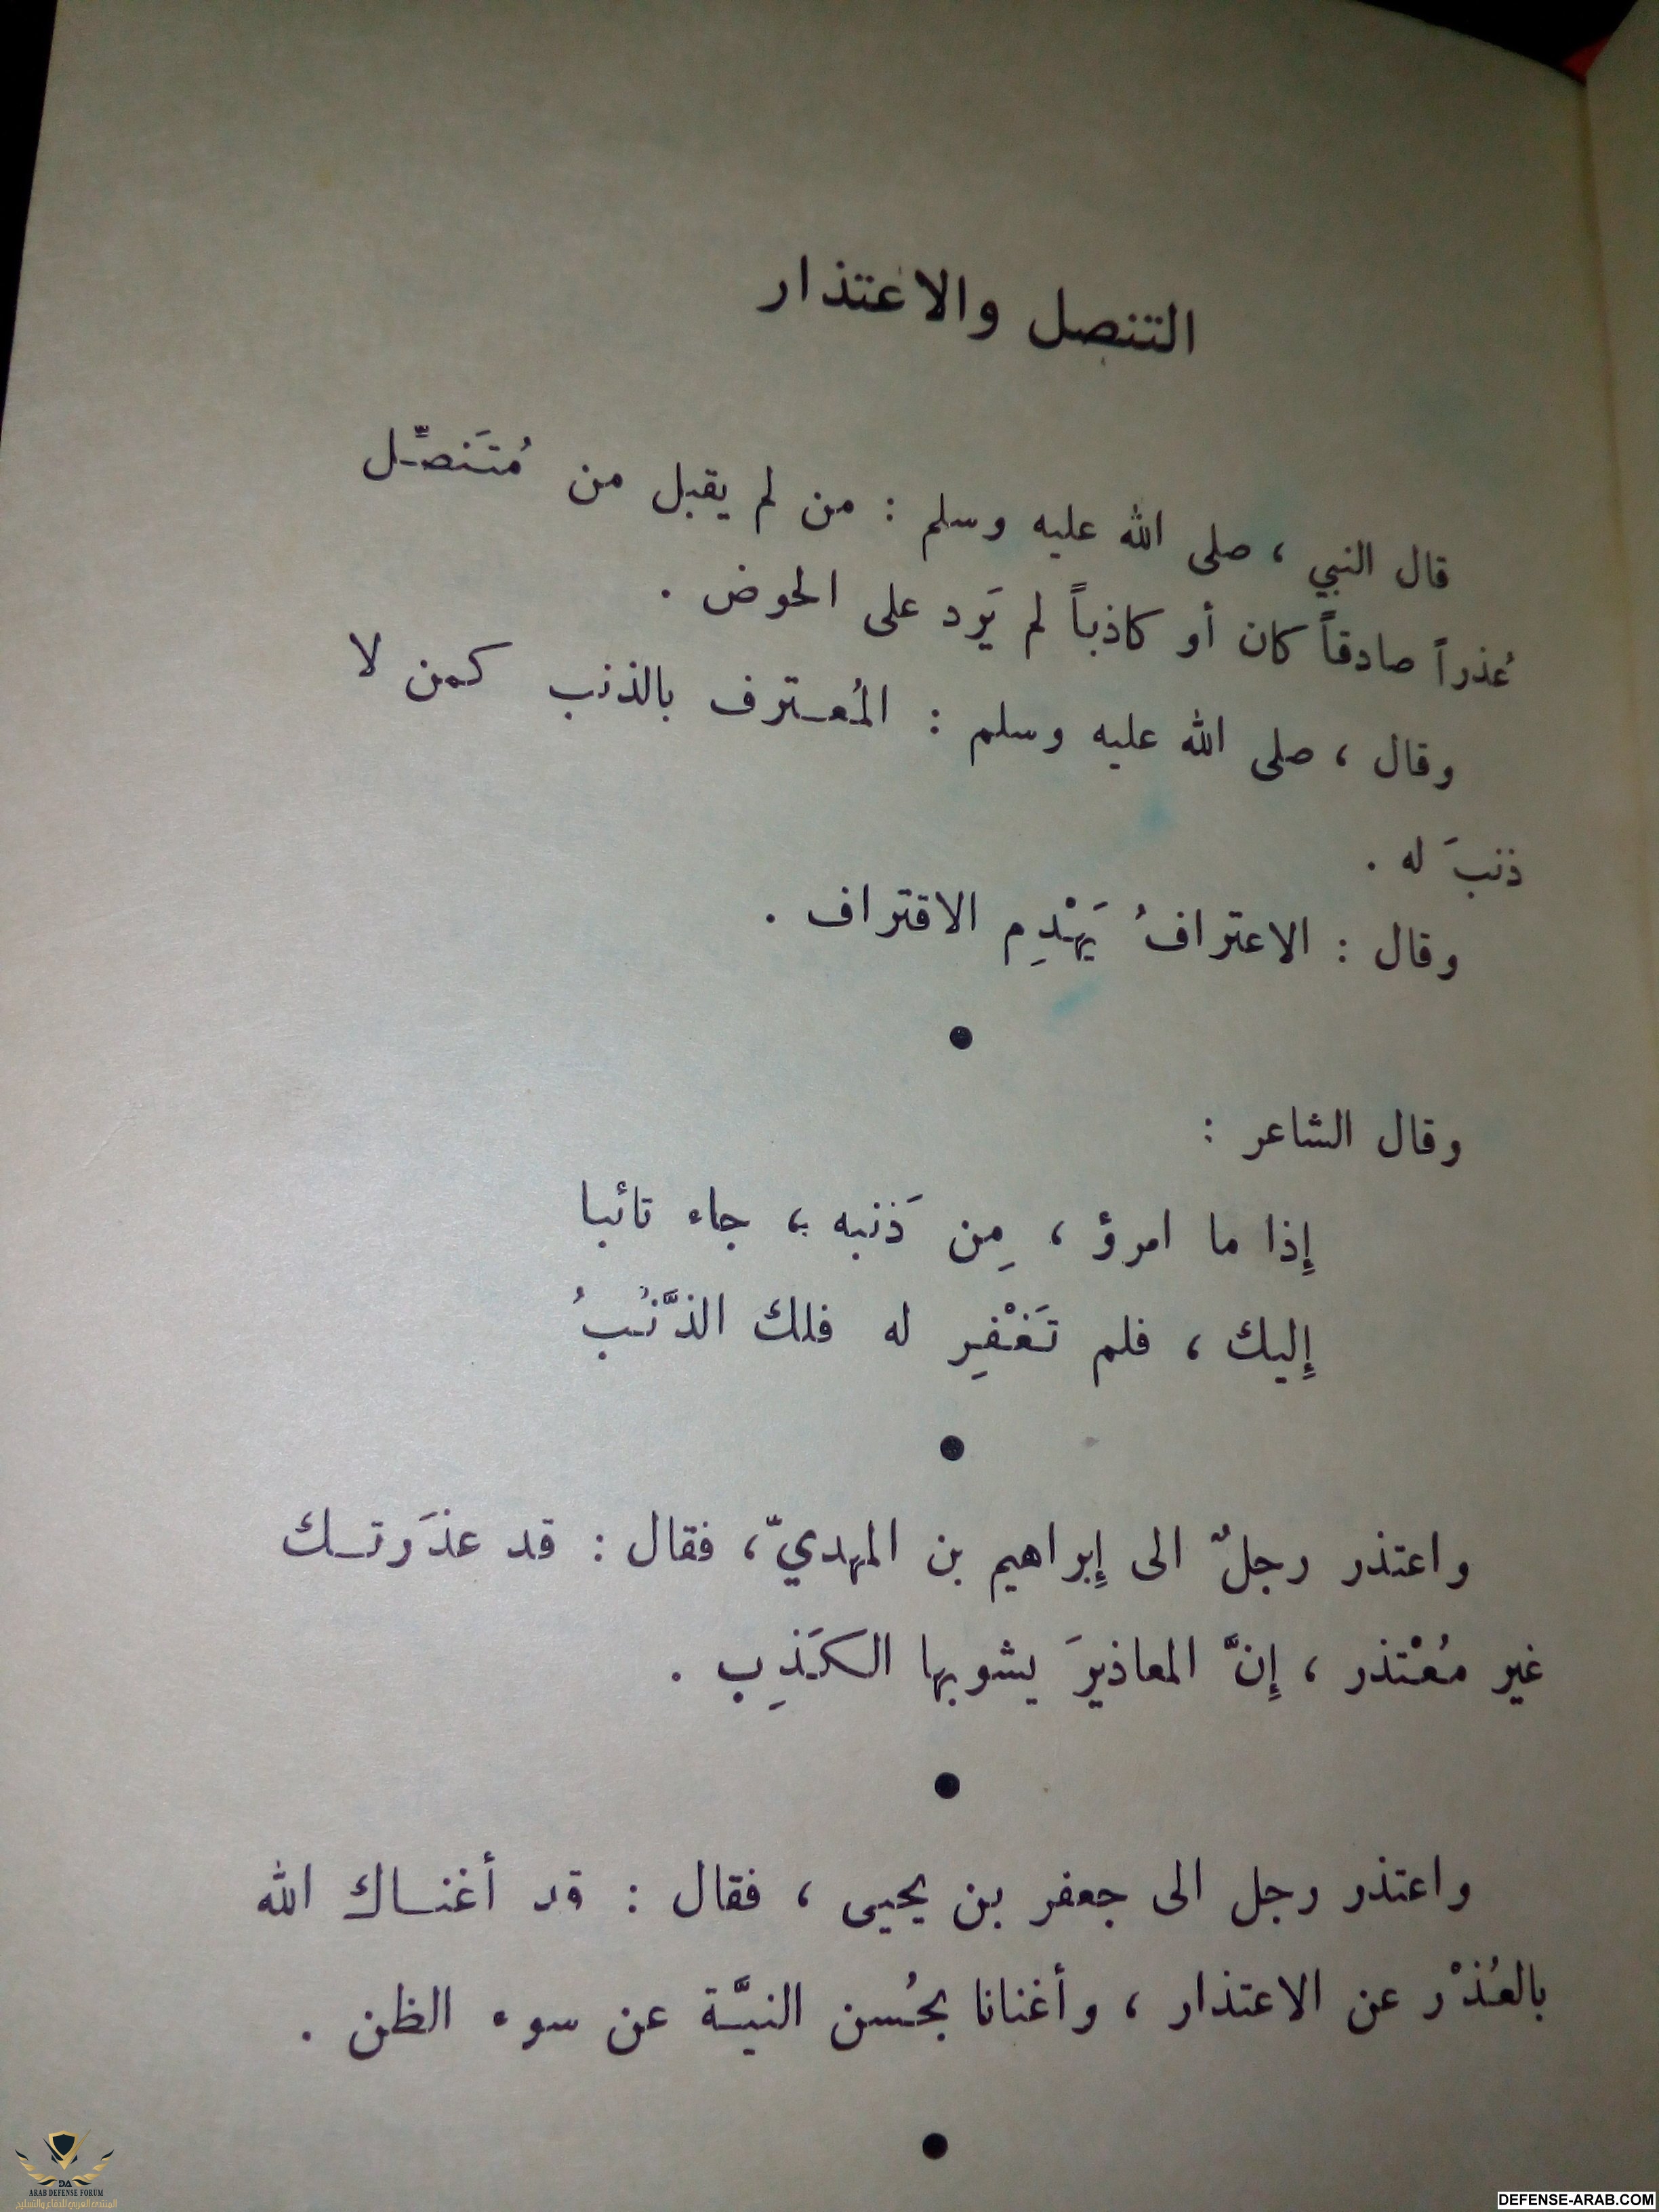 التنصل والاعتذار
قال النبي ، صلى الله عليه وسلم : من لم يقبل من مُتَنصِّل
عُذراً صادقاً كان أو كاذباً لم يَرد على الحوض .
وقال ، صلى الله عليه وسلم : المُعترف بالذنب كمن لا
ذنبَ له .
وقال : الاعترافُ يَهْدِم الاقتراف .
●
وقال الشاعر :
إِذا ما امرؤ ، مِن ذَنبه ، جاء تائبا
إِليك ، فلم تَغْفِر له فلك الذَّنبُ
●
واعتذر رجلٌ الى إِبراهيم بن المهديّ ، فقال : قد عذَرتك
غير مُعْتذر ، إِنَّ المعاذيرَ يشوبها الكَذِب .
●
واعتذر رجل الى جعفر بن يحيى ، فقال : قد أغناك الله
بالعُذْر عن الاعتذار ، وأغنانا بحُسن النيَّة عن سوء الظن .
●
DA
ARAB DEFENSE FORUM
المنتدى العربي للدفاع والتسليح
DEFENSE-ARAB.COM